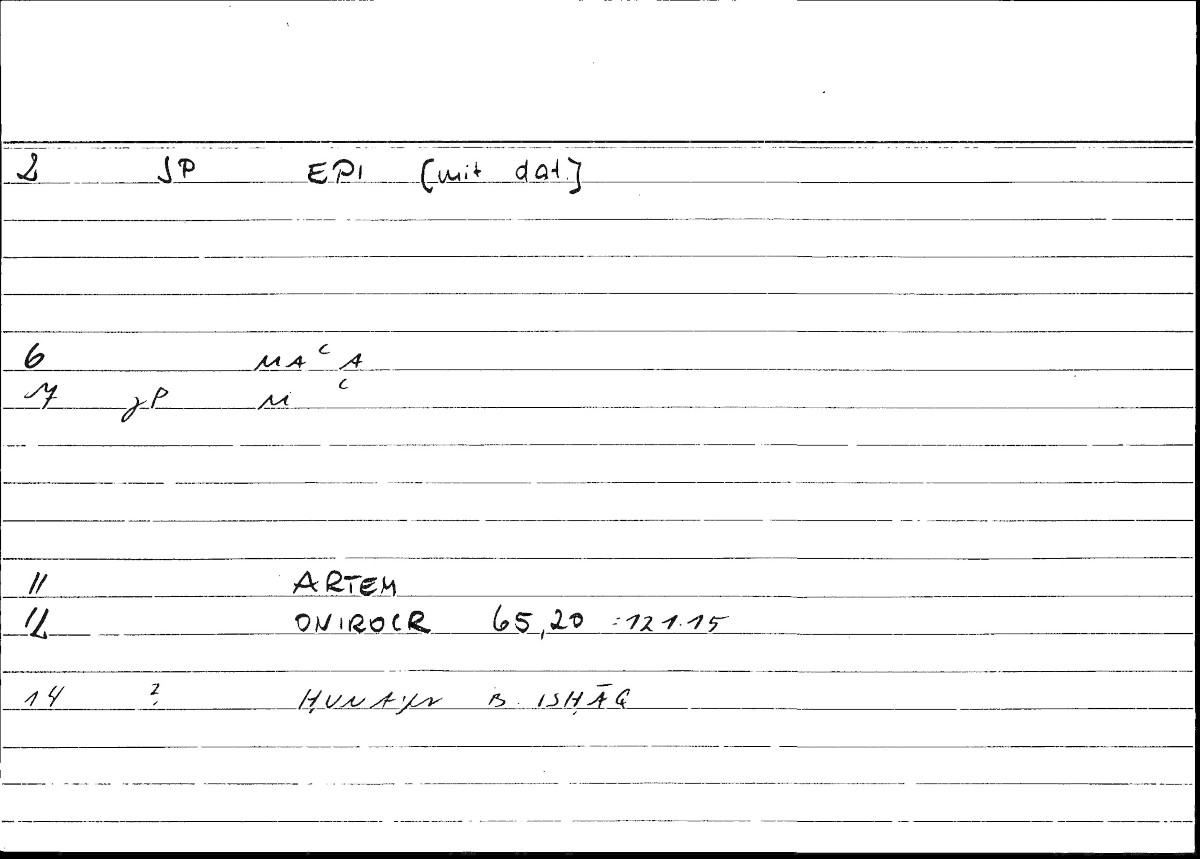 2 JP EPI [mit dat.]
6 MAʿA
7 JP Mʿ
11 ARTEM
12 ONIROCR 65,20 :121.15
14 ? ḤUNAYN B. ISḤĀQ